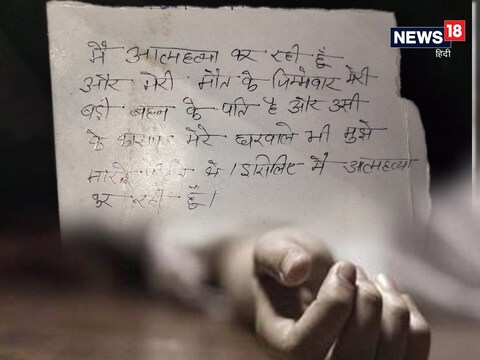 NEWS 18
हिंदी
मैं आत्महत्या कर रही हूँ
और मेरी मौत के जिम्मेवार मेरी
बड़ी बहन के पति है और उसी
के कारण मेरे घरवाले भी मुझे
थे। इसलिए मैं आत्महत्या
कर रही हूँ।